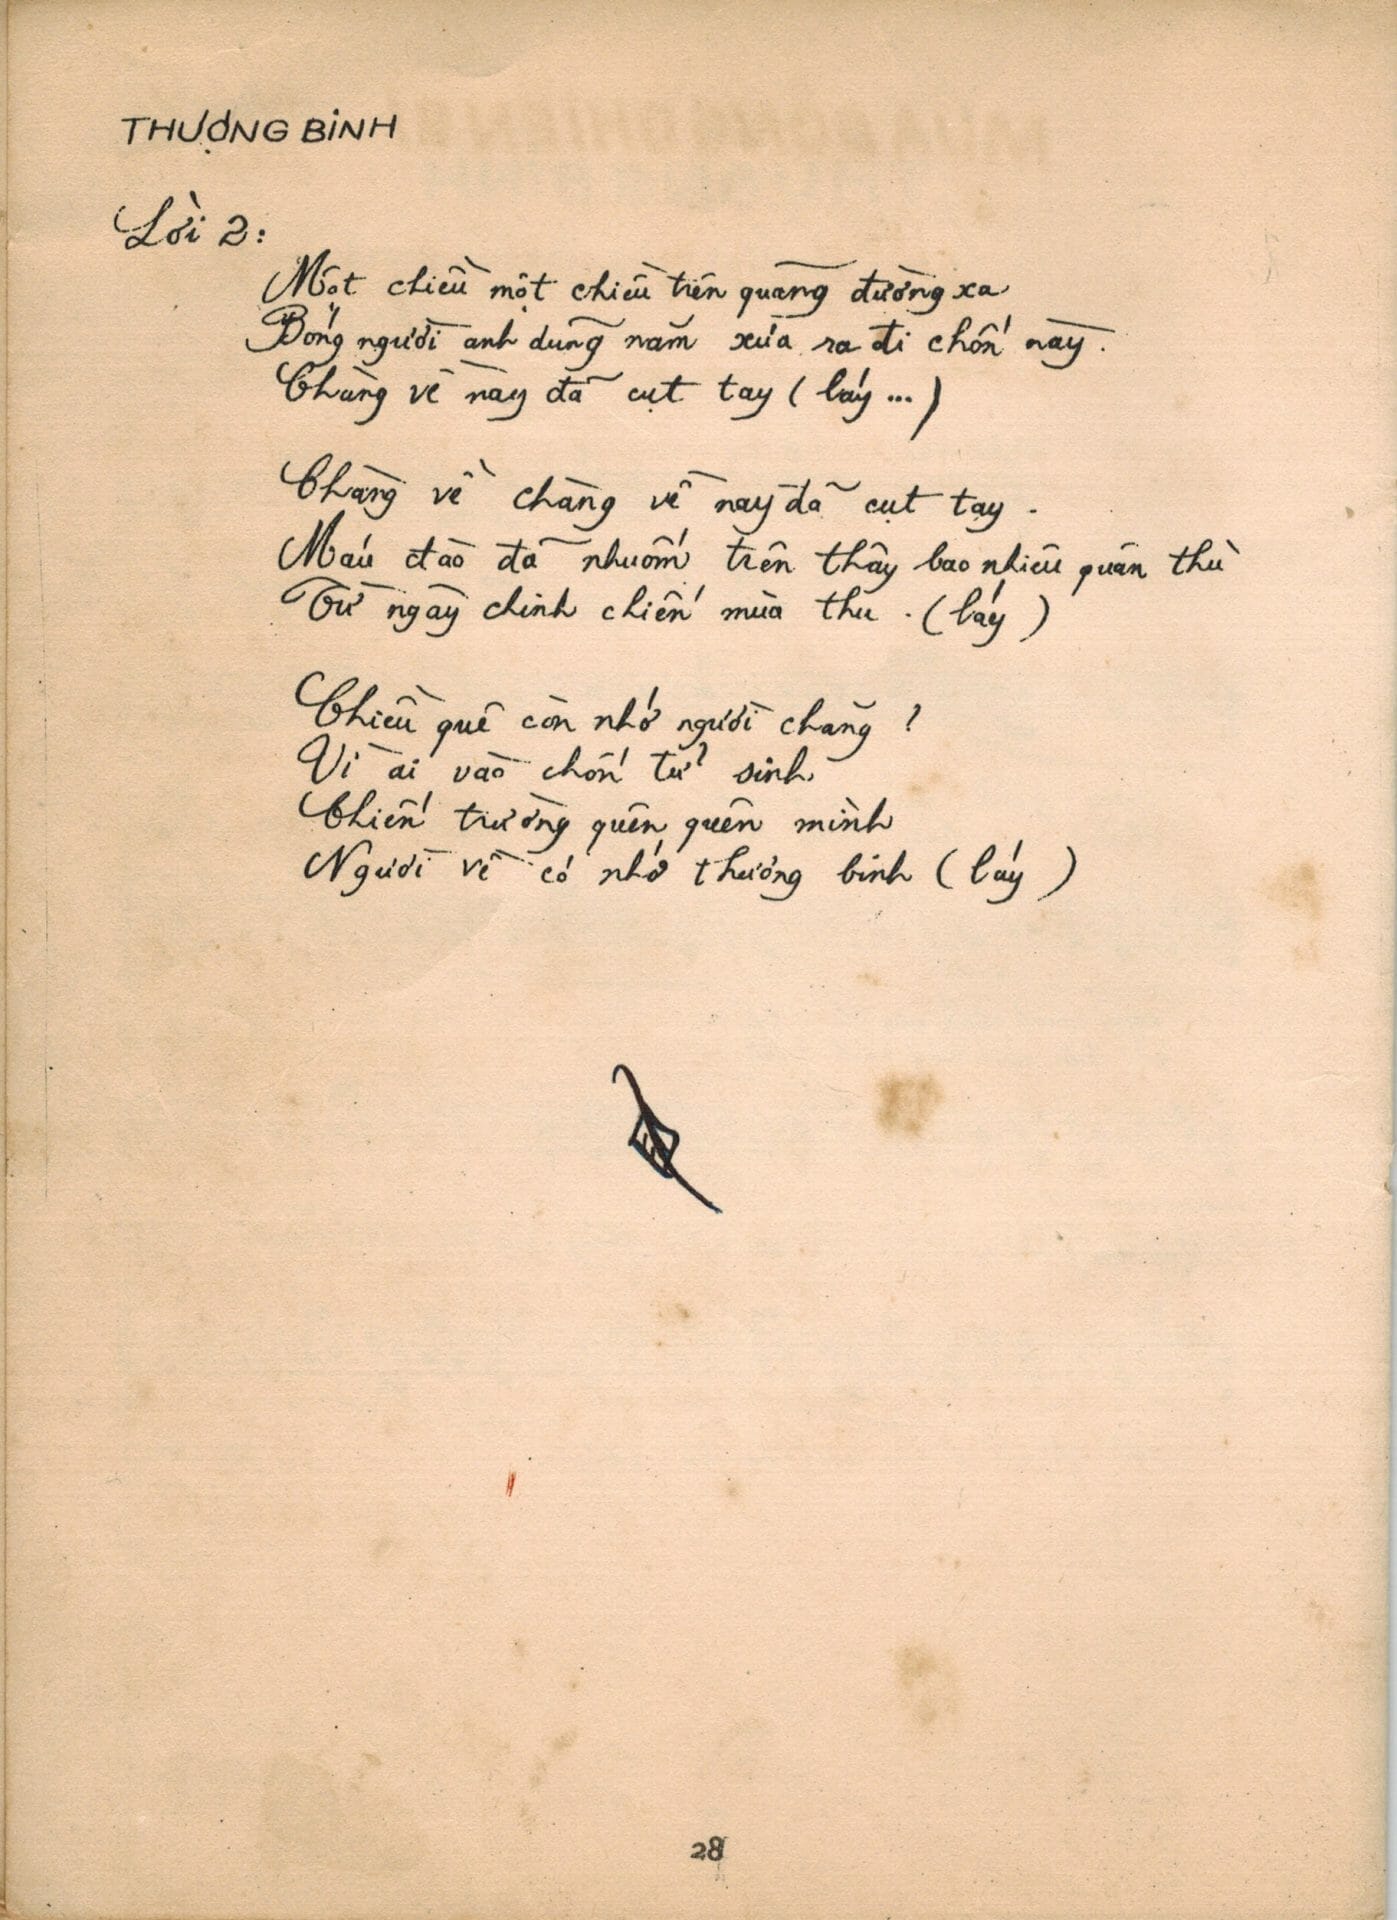 THƯỢNG BINH
Lời 2:
Một chiều một chiều trên quãng đường xa
Bóng người anh dũng năm xưa ra đi chốn này.
Chàng về nay đã cụt tay ( láy ... )
Chàng về chàng về nay đã cụt tay .
Máu đào đã nhuốm trên thây bao nhiêu quân thù
Từ ngày chinh chiến mùa thu . ( láy )
Chiều quê còn nhớ người chăng ?
Vì ai vào chốn tử sinh
Chiến trường quên quên mình
Người về có nhớ thương binh ( láy )
28